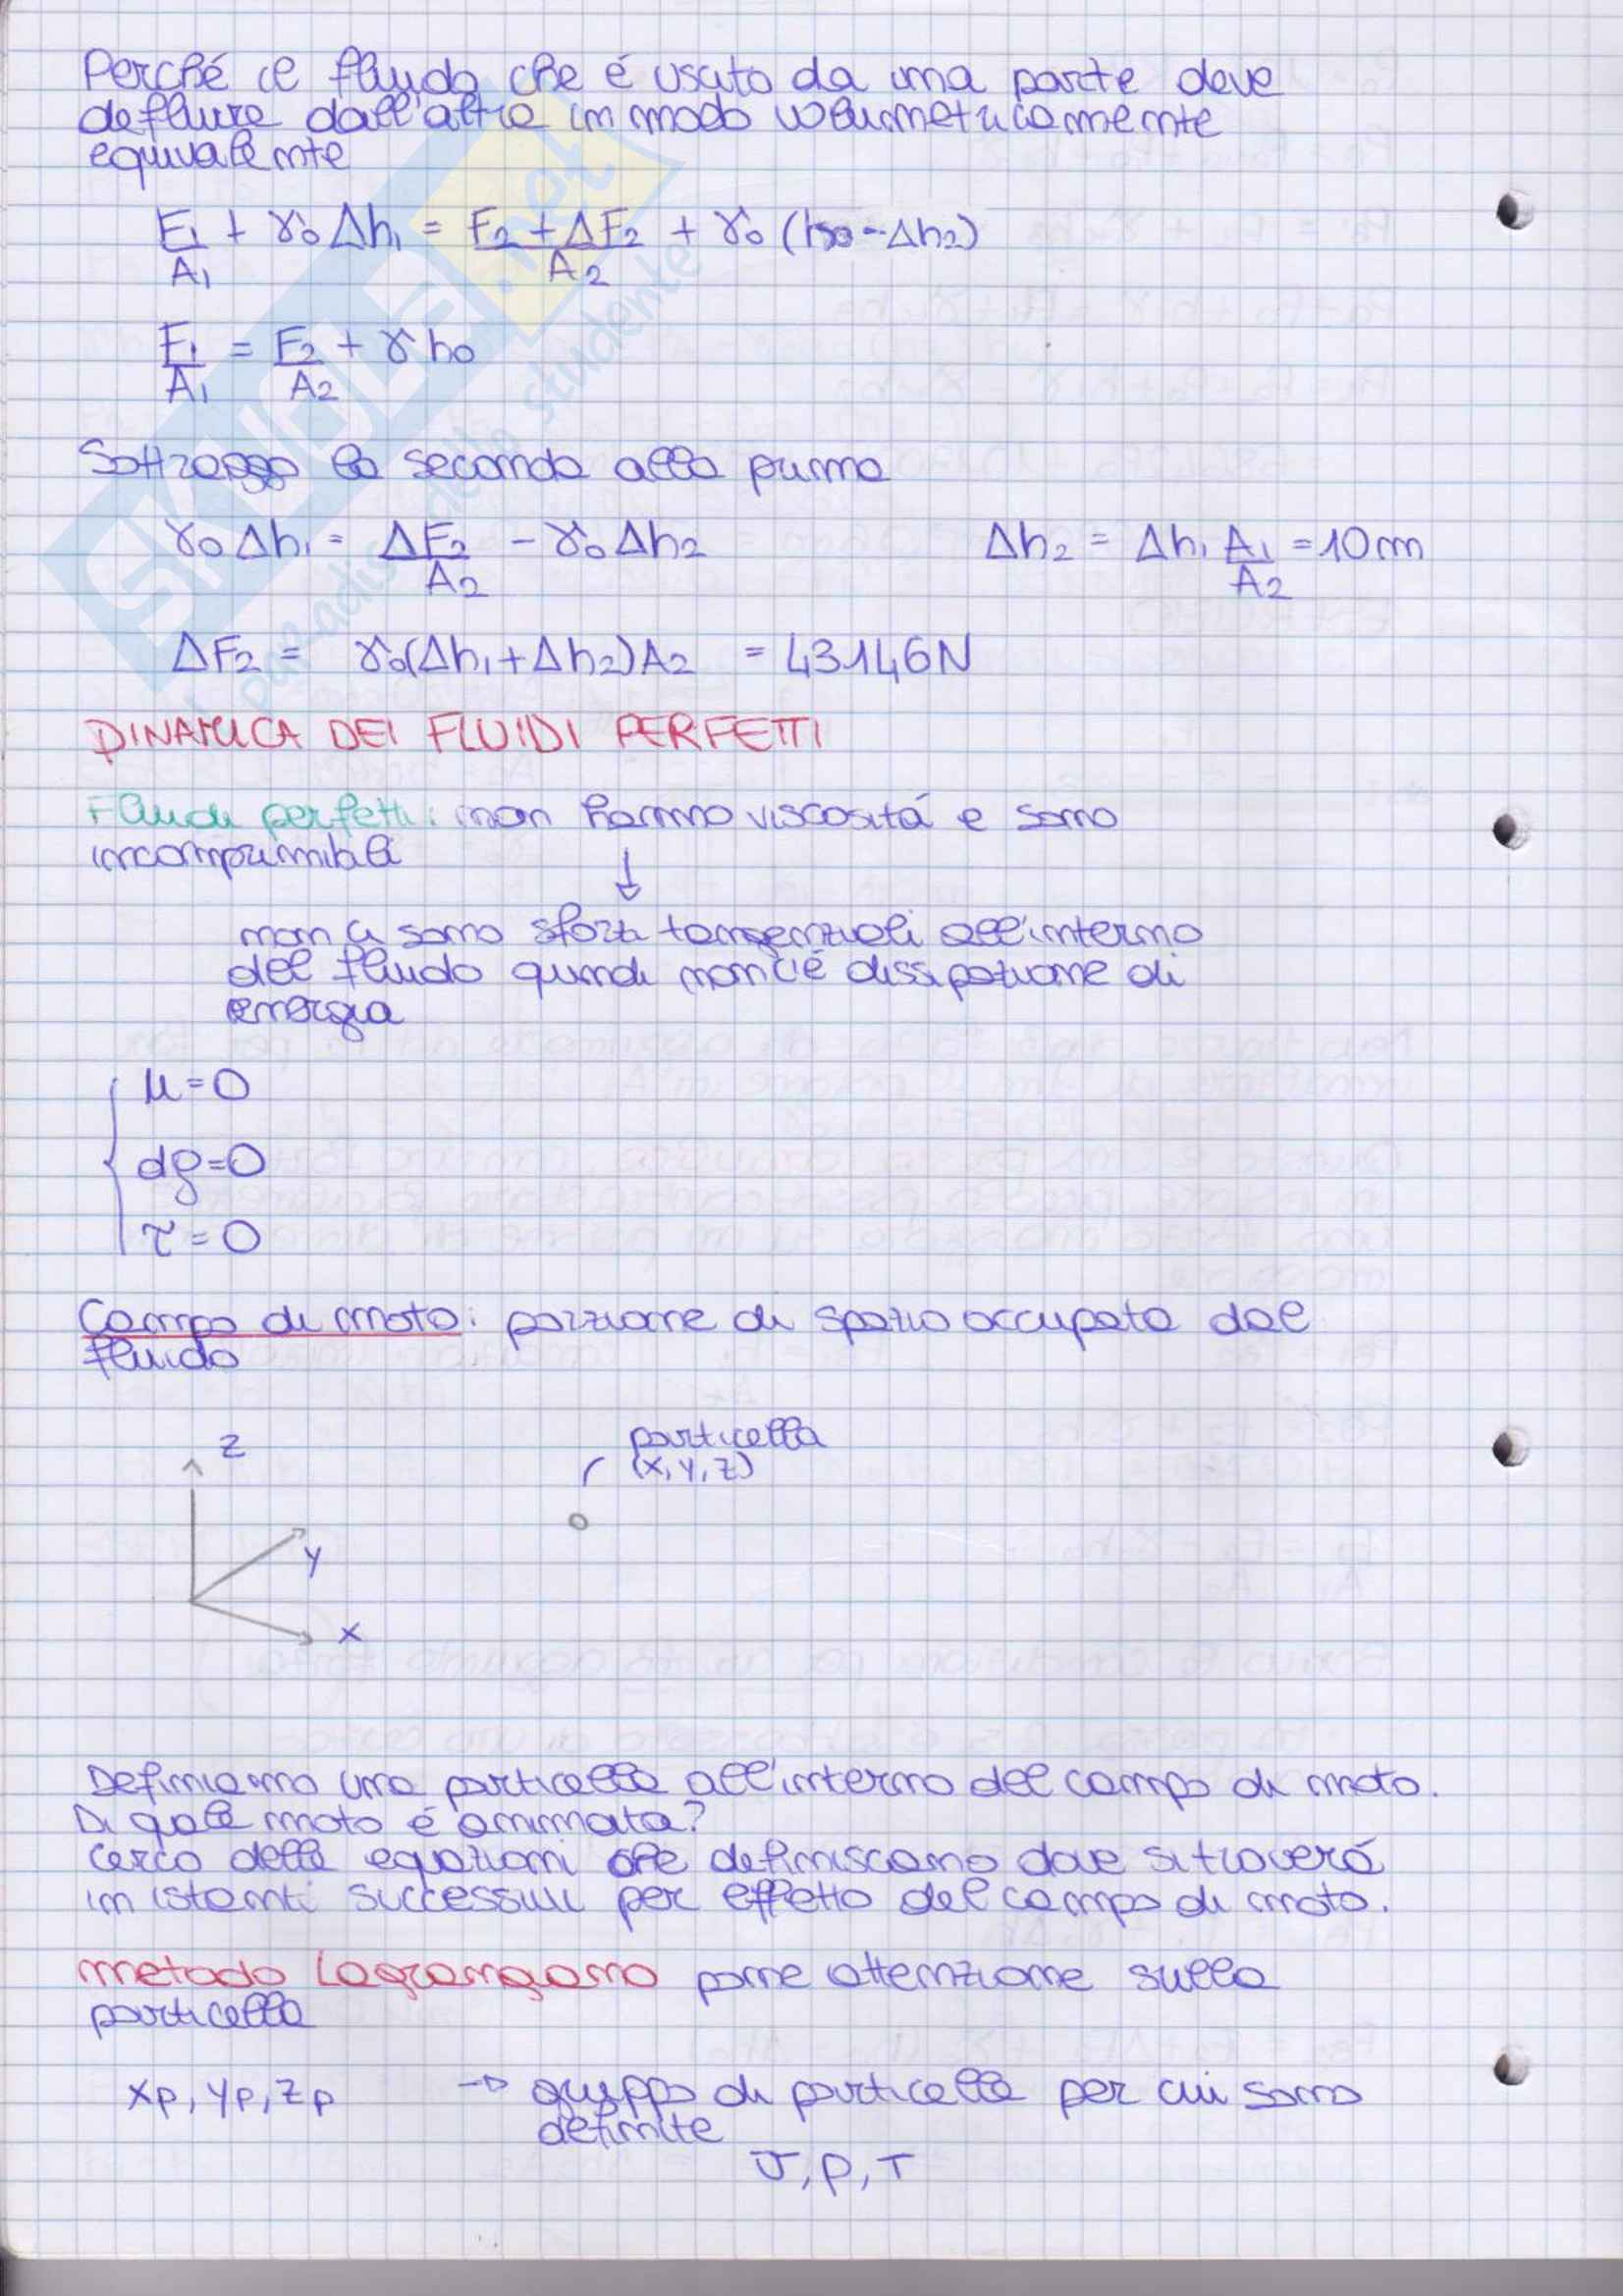 Perché il fluido che é usato da una parte deve
defluire dall'altra in modo volumetricamente
equivalente
F₁/A₁ + γ₀Δh₁ = (F₂+ΔF₂)/A₂ + γ₀(h₀-Δh₂)
F₁/A₁ = F₂/A₂ + γh₀
Sottraggo la seconda alla prima
γ₀Δh₁ = ΔF₂/A₂ - γ₀Δh₂ Δh₂ = Δh₁ A₁/A₂ = 10cm
ΔF₂ = γ₀(Δh₁+Δh₂)A₂ = 43146N
DINAMICA DEI FLUIDI PERFETTI
Fluidi perfetti: non hanno viscositá e sono
incomprimibili
↓
non ci sono sforzi tangenziali all'interno
del fluido quindi non c'é dissipazione di
energia
μ=0
dρ=0
τ=0
Campo di moto: porzione di spazio occupata dal
fluido
z
particella
(x,y,z)
y
x
Definiamo una particella all'interno del campo di moto.
Di quale moto é animata?
Cerco delle equazioni che definiscono dove si troverá
in istanti successivi per effetto del campo di moto.
metodo Lagrangiano pone attenzione sulla
particella
xp, yp, zp → gruppo di particelle per cui sono
definite
v, p, T
SKUOLA.net
il paradiso dello studente